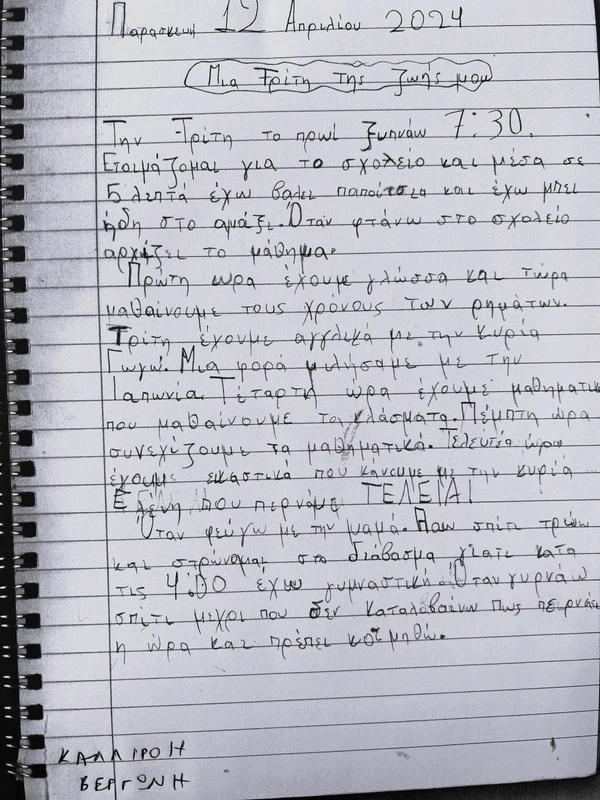 Παρασκευή 12 Απριλίου 2024
Μια Τρίτη της ζωής μου
Την Τρίτη το πρωί ξυπνάω 7:30.
Ετοιμάζομαι για το σχολείο και μέσα σε
5 λεπτά έχω βαλει παπούτσια και έχω μπει
ήδη στο αμάξι. Όταν φτάνω στο σχολείο
αρχίζει το μάθημα.
Πρώτη ωρα έχουμε γλώσσα και τώρα
μαθαίνουμε τους χρόνους των ρημάτων.
Τρίτη έχουμε αγγλικά με την κυρία
Γωγώ. Μια φορά μιλήσαμε με την
Ιαπωνία. Τέταρτη ώρα έχουμε μαθηματικ
που μαθαίνουμε τα κλάσματα. Πέμπτη ώρα
συνεχίζουμε τα μαθηματικά. Τελευτέα ώρα
έχουμε εικαστικά που κανουμε με την κυρία
Ελένη που περνάμε ΤΕΛΕΙΑ!
Όταν φεύγω με την μαμά. Παω σπίτι τρώω
και στρώνομαι στο διάβασμα γιατι κατα
τις 4:00 έχω γυμναστική. Όταν γυρνάω
σπίτι μεχρι που δεν καταλαβαίνω πως περνάει
η ώρα και πρέπει κοιμηθώ.
ΚΑΛΛΙΡΟΗ
ΒΕΡΓΩΝΗ